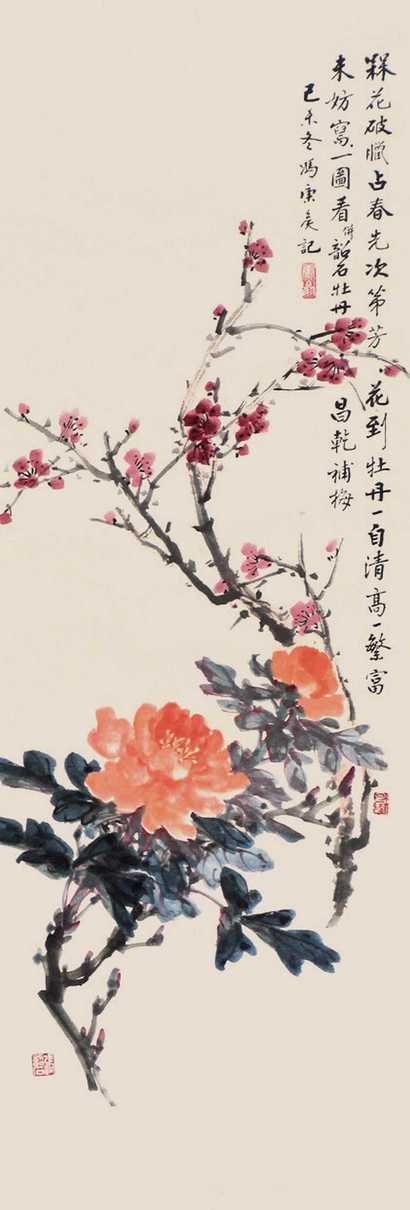 花破臘占春先次第芳花到牡丹一自清高一繁富
未妨寫一圖看併韶石牡丹 昌乾補梅
己未冬馮康矦記